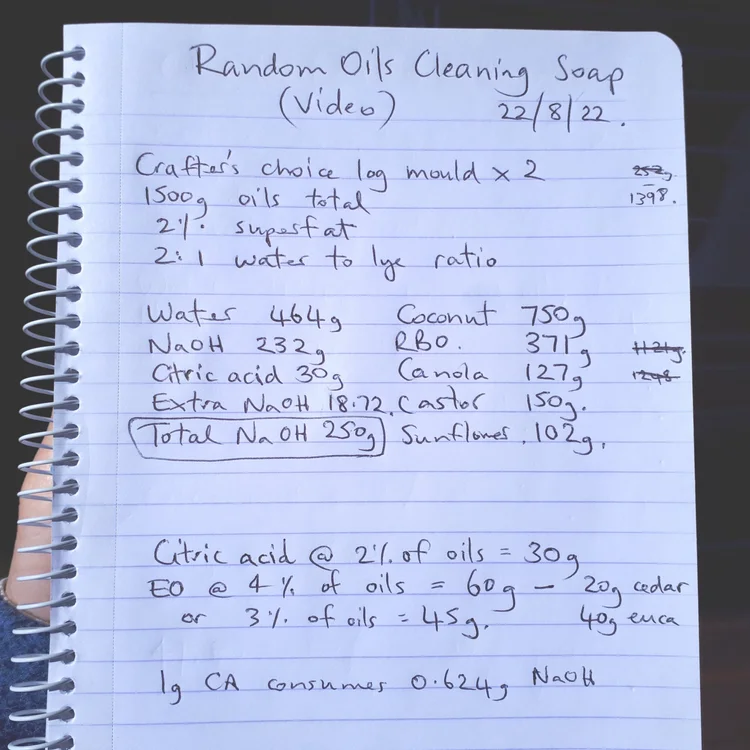 Random Oils Cleaning Soap
(Video) 22/8/22.
Crafter's choice log mould x 2
252g
1500g oils total
1398.
2% superfat
2:1 water to lye ratio
Water 464g Coconut 750g
NaOH 232g RBO. 371g 1121g.
Citric acid 30g Canola 127g 1248
Extra NaOH 18.72. Castor 150g.
Total NaOH 250g Sunflower. 102g.
Citric acid @ 2% of oils = 30g
EO @ 4% of oils = 60g - 20g cedar
or 3% of oils = 45g. 40g euca
1g CA consumes 0.624g NaOH